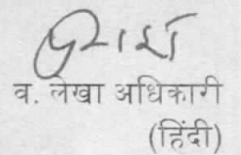 व. लेखा अधिकारी
(हिंदी)